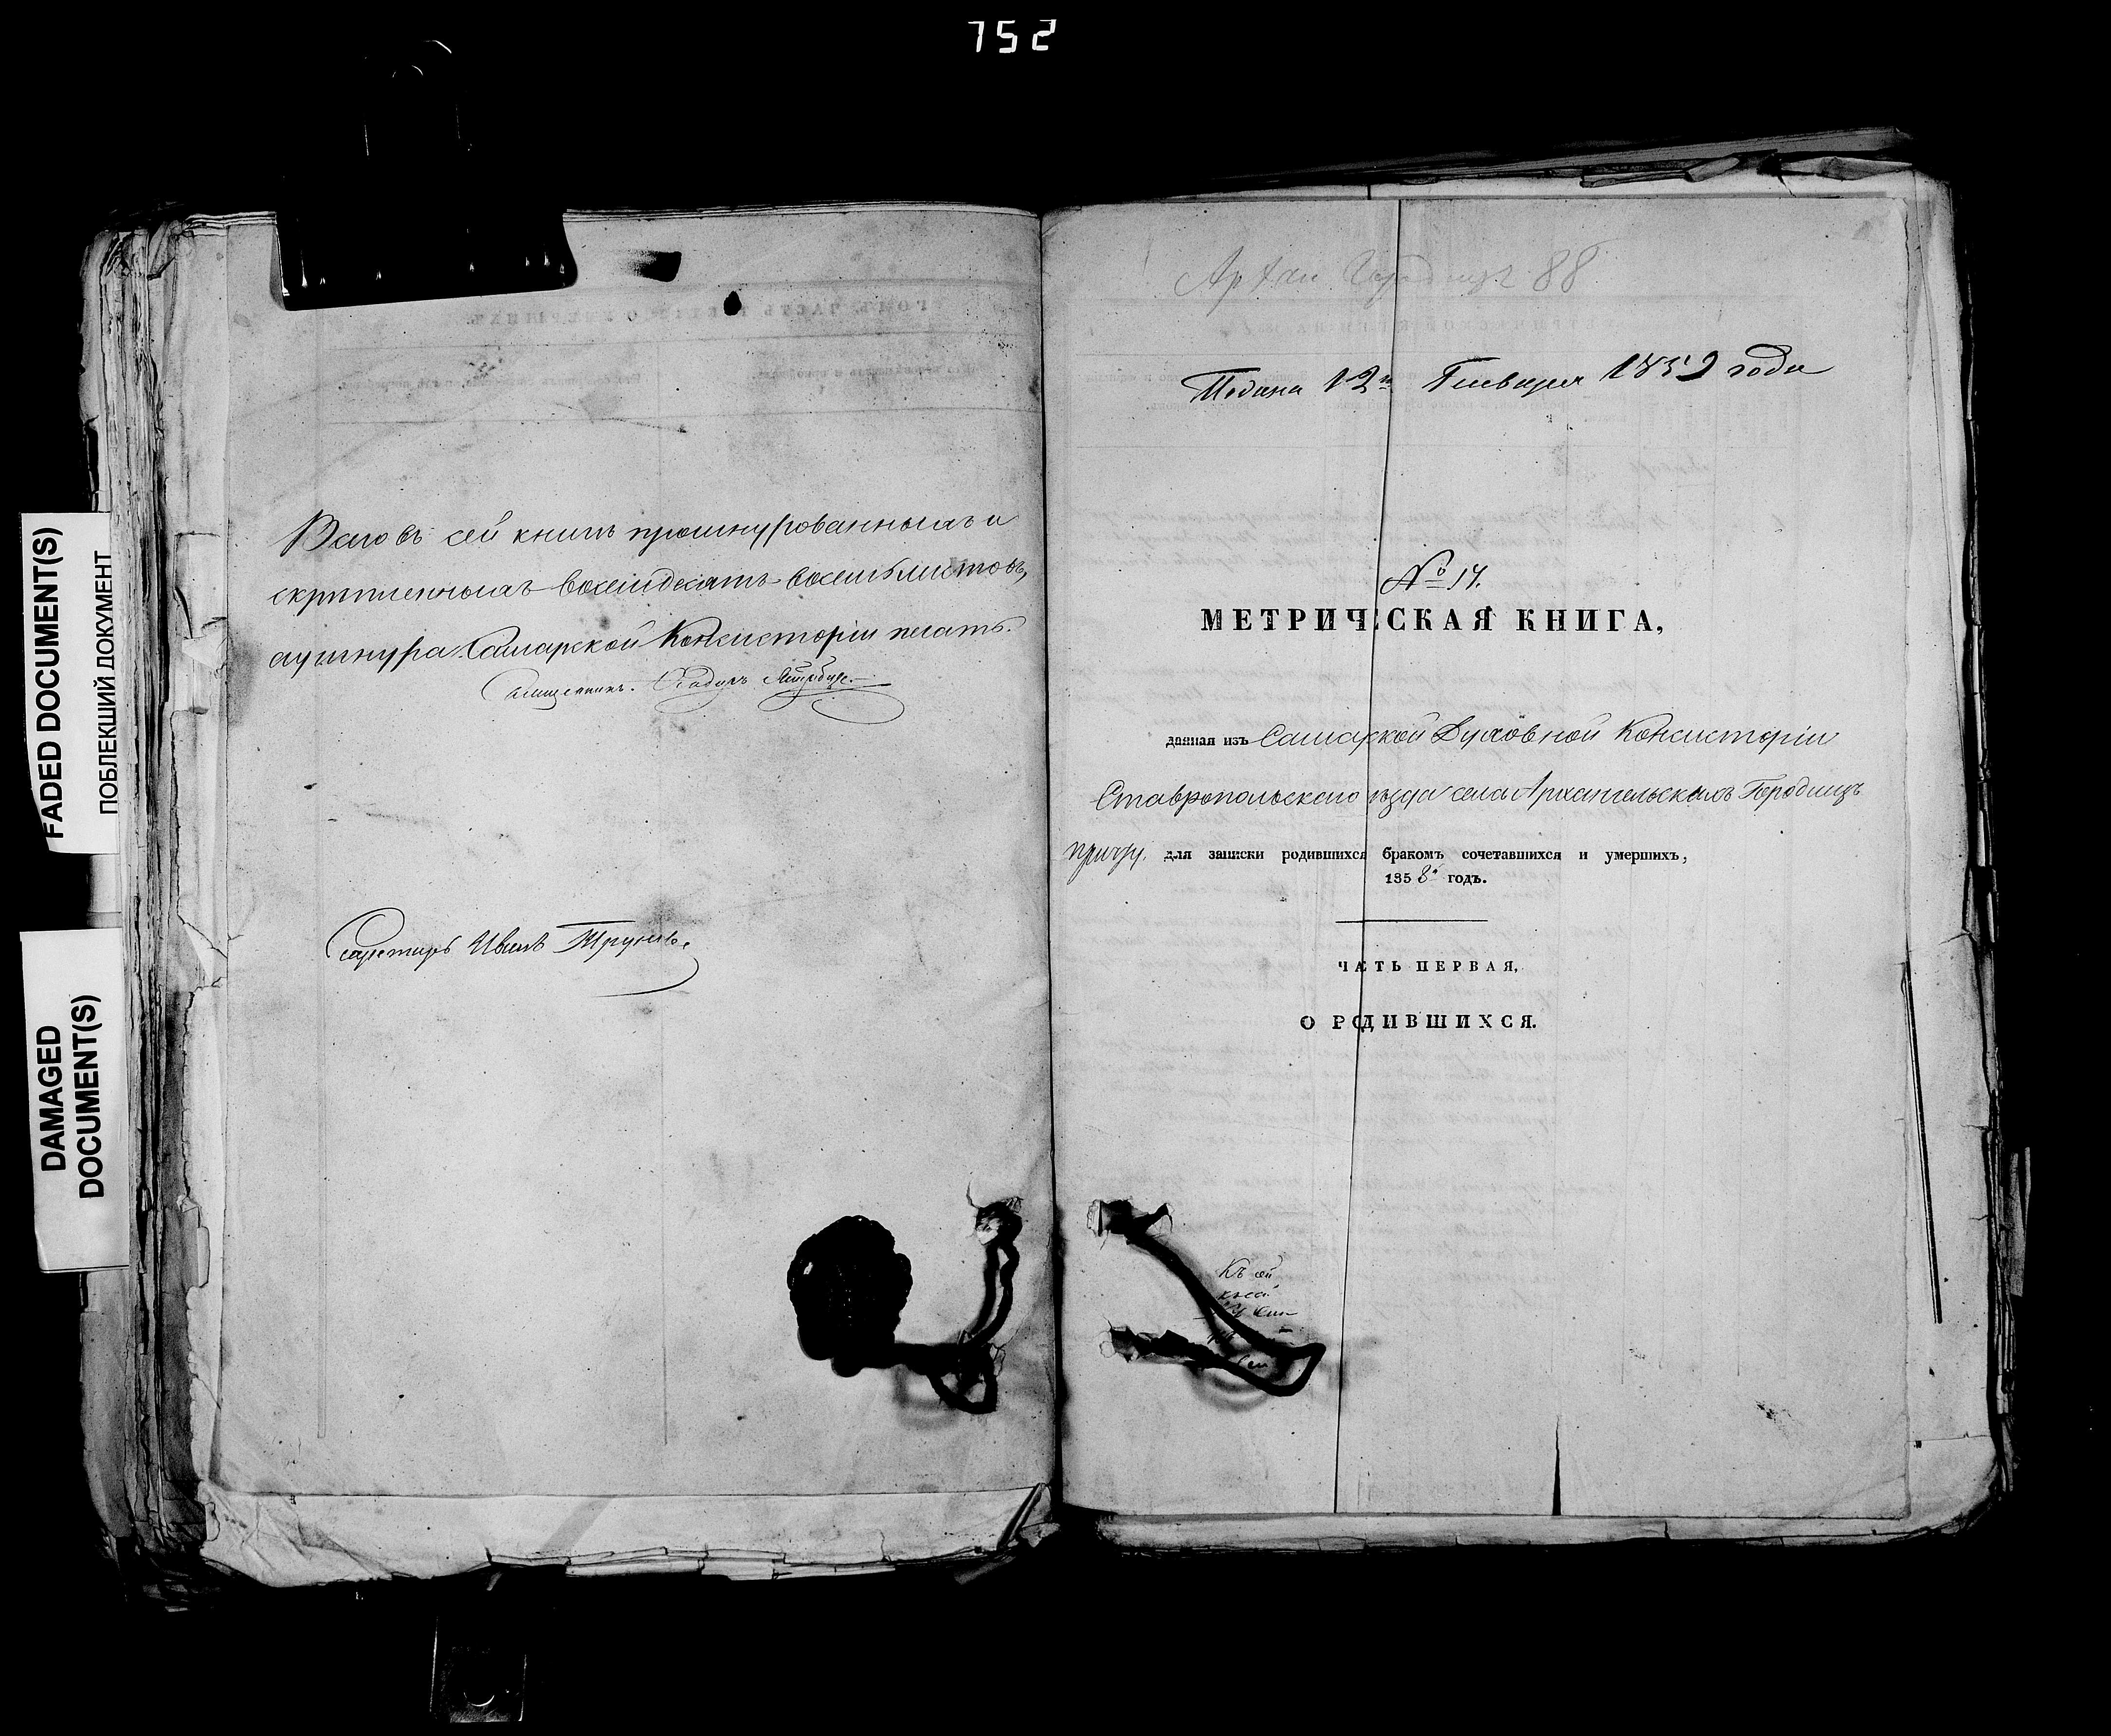 752
FADED DOCUMENT(S)
ПОБЛЕКШИЙ ДОКУМЕНТ
DAMAGED
DOCUMENT(S)
Всего въ сей книгѣ прошнурованныхъ и
скрѣпленныхъ восемьдесятъ восемь листовъ,
а у шнура Самарской Консисторіи печать.
Священникъ.
Секретарь Иванъ Труновъ.
Архан Городищъ 88
Подана 12го Генваря 1859 года
№ 14.
МЕТРИЧЕСКАЯ КНИГА,
данная изъ Самарской Духовной Консисторіи
Ставропольскаго уѣзда села Архангельскихъ Городищъ
причту. для записки родившихся бракомъ сочетавшихся и умершихъ,
1858й годъ.
ЧАСТЬ ПЕРВАЯ,
О РОДИВШИХСЯ.
Къ сей